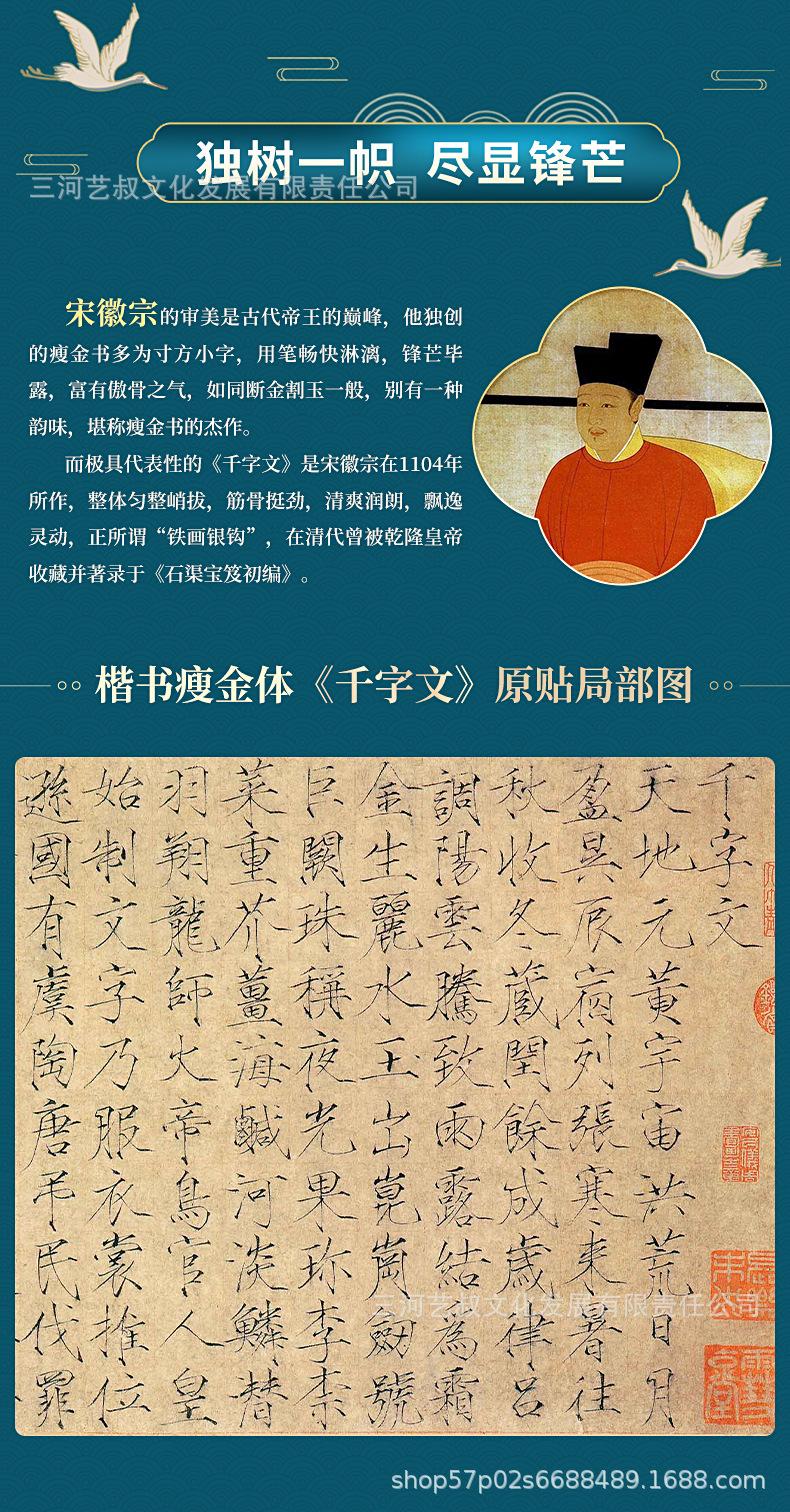 独树一帜 尽显锋芒
三河艺叔文化发展有限责任公司
宋徽宗的审美是古代帝王的巅峰，他独创
的瘦金书多为寸方小字，用笔畅快淋漓，锋芒毕
露，富有傲骨之气，如同断金割玉一般，别有一种
韵味，堪称瘦金书的杰作。
而极具代表性的《千字文》是宋徽宗在1104年
所作，整体匀整峭拔，筋骨挺劲，清爽润朗，飘逸
灵动，正所谓“铁画银钩”，在清代曾被乾隆皇帝
收藏并著录于《石渠宝笈初编》。
楷书瘦金体《千字文》原贴局部图
千字文
天地元黄宇宙洪荒日月
盈昃辰宿列張寒来暑往
秋收冬蔵閏餘成歲律呂
調陽雲騰致雨露結為霜
金生麗水玉出崑崗劒號
巨闕珠稱夜光果珍李柰
菜重芥薑海鹹河淡鱗潛
羽翔龍師火帝鳥官人皇
始制文字乃服衣裳推位
遜國有虞陶唐弔民伐罪
三河艺叔文化发展有限责任公司
shop57p02s6688489.1688.com